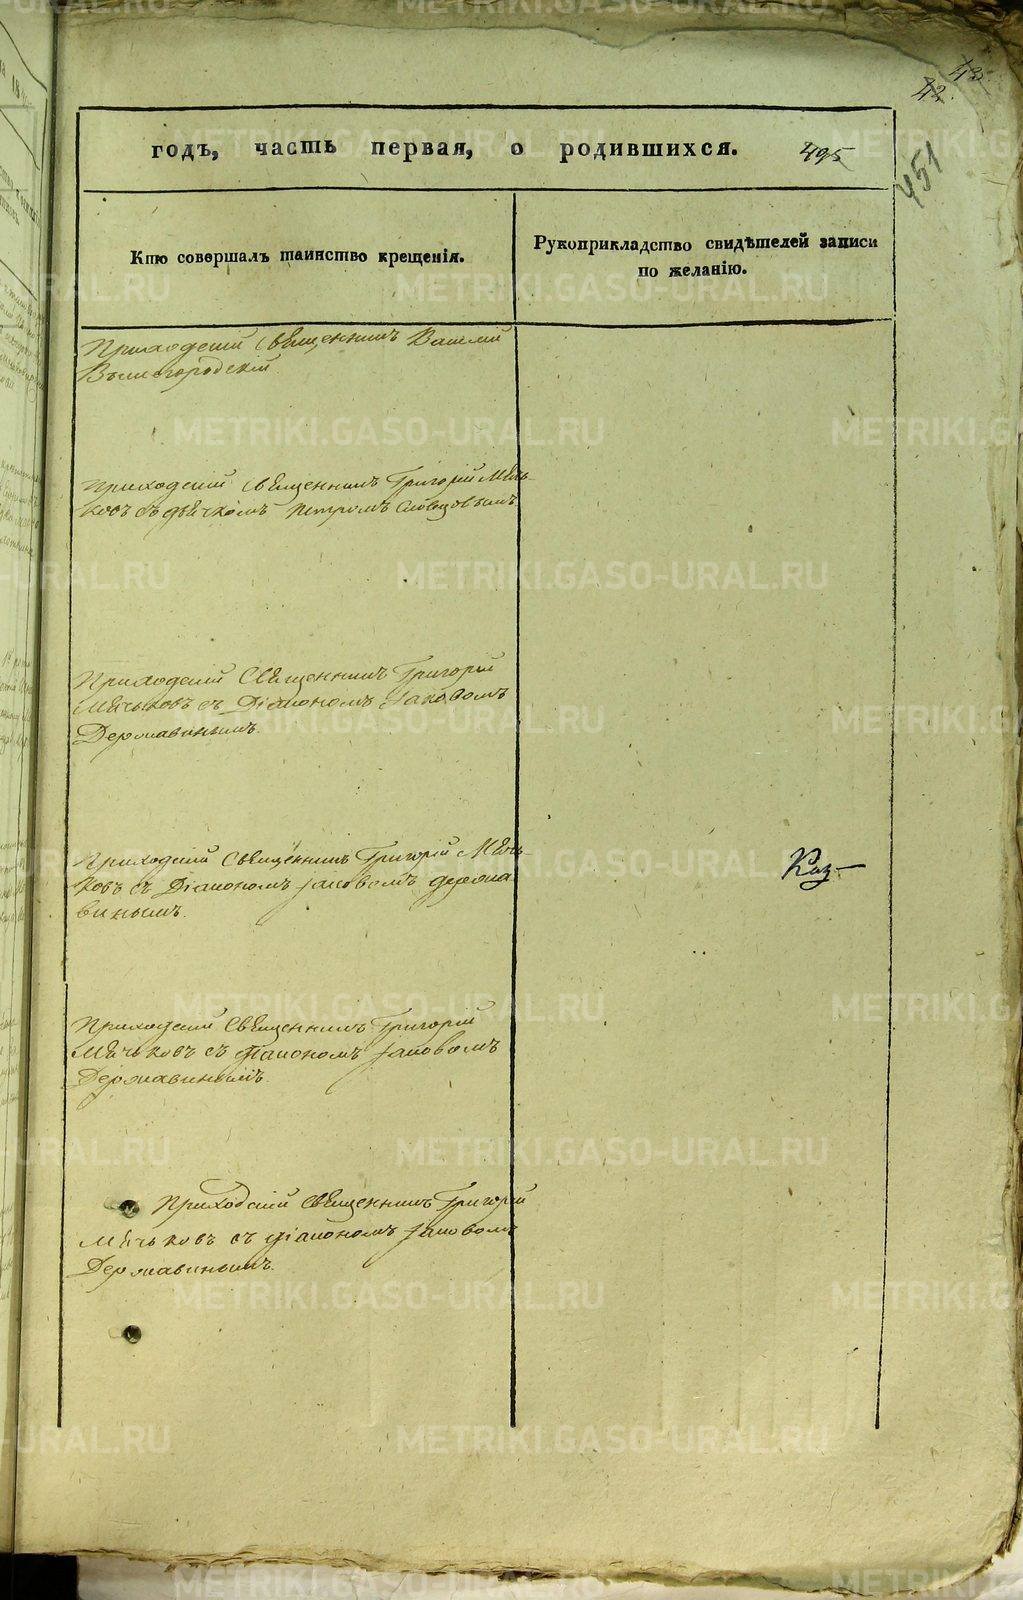 43.
42.
годъ, часть первая, о родившихся. 495
451
Кто совершалъ таинство крещенія.
Рукоприкладство свидѣтелей записи
по желанію.
Приходскій священникъ Василій
Вышегородскій
Приходскій священникъ Григорій Мѣчь-
ковъ съ дьячкомъ Петромъ Словцовымъ
Приходскій Священникъ Григорій
Мѣчьковъ съ Діакономъ Іаковомъ
Державинымъ.
Приходскій Священникъ Григорій Мѣчь
ковъ съ Діакономъ Іаковомъ Держа
винымъ.
Приходскій Священникъ Григорій
Мѣчьковъ съ Діакономъ Іаковомъ
Державинымъ.
Приходскій Священникъ Григорій
Мѣчьковъ съ Діакономъ Іаковомъ
Державинымъ.
METRIKI.GASO-URAL.RU